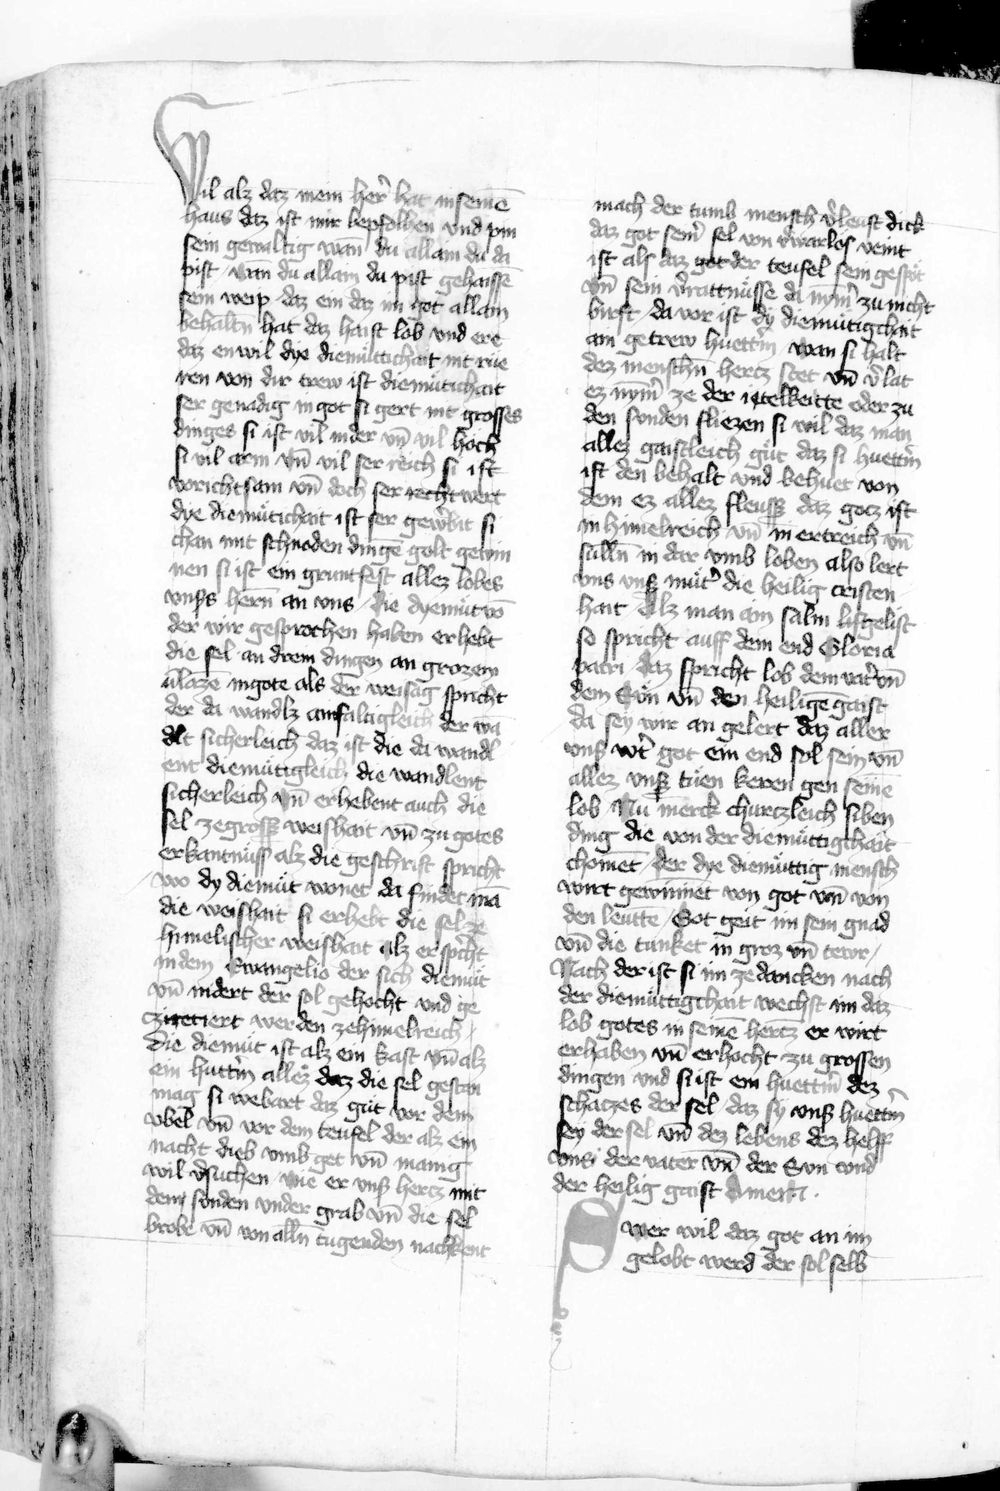 Wil alz daz mein her hat in seinē
haus daz ist mir bepfolhen vnd pin
sein gewaltig wan du allain du da
pist wan du allain du pist gehaissē
sein weip daz ein daz im got allain
behaltn̄ hat daz haist lob vnd ere
daz en wil dye diemüttichait nit rüe
ren von dir trew ist diemütichait
ser genadig in got si gert nit grosses
dinges si ist vil nider vn̄ vil hoch
si vil arm vn̄ vil ser reich si ist
vorichtsam vn̄ doch ser recht wert
dye diemütichait ist ser si
chan mit schnoden dingē golt gewin
nen si ist ein gruntfest allez lobes
vnsers hern̄ an vns die dyemüt vō
der wir gesprochen haben erhebt
die sel an drein dingen an grozem
in gote als der weisag spricht
der da wandlz ainfaltigleich der wā
delt sicherleich daz ist die da wandl
ent diemütigleich die wandlent
sicherleich vn̄ erhebent auch die
sel ze grosser weishait vn̄ zu gotes
erkantnüss alz die geschrift spricht
wo dy diemüt wonet da findet mā
die weishait si erhebt die sel ze
himelischer weishait alz er spͥcht
in dem Ewangelio der sich diemüt
vn̄ nidert der sol gehocht vnd ge
werden ze himelreich
die diemüt ist alz ein kast vn̄ alz
ein huttin̄ allez daz die sel gesan
mag si webart daz güt vor dem
vbel vn̄ vor dem teufel der alz ein
nacht dieb vmb get vn̄ manig
wil vsuchen wie er vnser hertz mit
dem sunden vnder grab vn̄ die sel
brobe vn̄ von alln̄ tugenden nachent
mach der tumb mensch v̓leust dick
daz got sein̓ sel von v̓warlos veint
ist als daz got der teufel sein gespöt
vn̄ sein v̓rattnüsse da nȳm̓ zu nicht
birst da vor ist dy diemütigchait
ain getrew huettin̄ wan si halt
dez menschn̄ hertz stet vn̄ v̓lat
ez nym̓ ze der itelkeitte oder zu
den sunden fliezen si wil daz man
allez gaistleich güt daz si huettin̄
ist den behalt vnd behuet von
dem ez allez fleusset daz gocz ist
in himelreich vn̄ in ertreich vn̄
sülln̄ in dar vmb loben also lert
vns vnser müt̓ die heilig cristen
hait Alz man ain salm list
so spricht auff dem end Gloria
patri daz spricht lob dem vat̓ vn̄
dem Sun vn̄ den heiligē gaist
da sey wir an gelert daz aller
vnser got ein end sol sein vn̄
allez vnser tüen keren gen seine
lob Nu merck churczleich siben
ding die von der diemüttigchait
chomēt der dye diemüttig mensch
wirt gewinnet von got vn̄ von
den leütte Got geit im sein gnad
vn̄ die tunket in groz vn̄ tewr
Nach der ist si im ze dancken nach
der diemüttigchait wechst im daz
lob gotes in seinē hertz er wirt
erhaben vn̄ erhocht zu grossen
dingen vnd si ist ein huettin̄ dez
schaczes der sel daz sy vnser huettin̄
sey der sel vn̄ dez lebens dez helff
vns der vater vn̄ der Sun vnd
der heilig gaist Amen.
Swer wil daz got an im
gelobt werd der sol selb